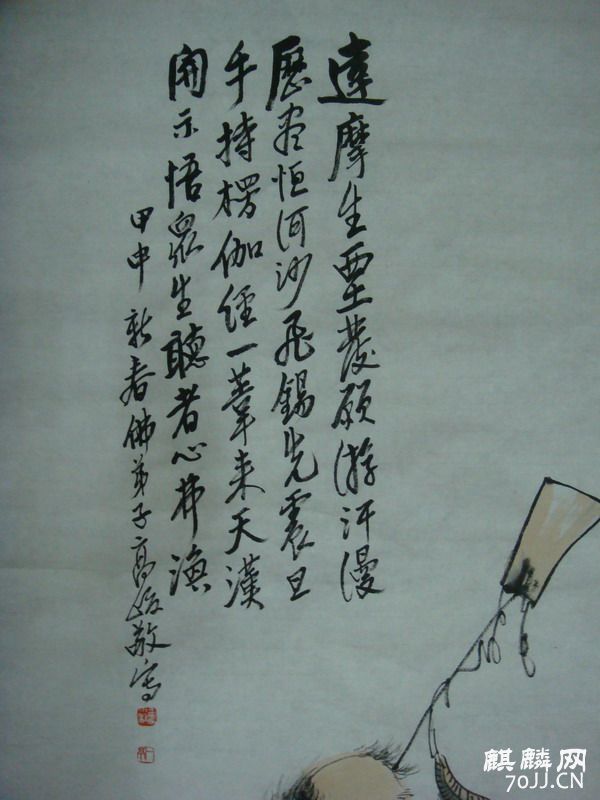 達摩生西土發願游汗漫
歷盡恒河沙飛錫光震旦
手持楞伽經一葦来天漢
開示悟眾生聽者心弗渙
甲申新春佛弟子高敬寫
麒麟网
70JJ.CN